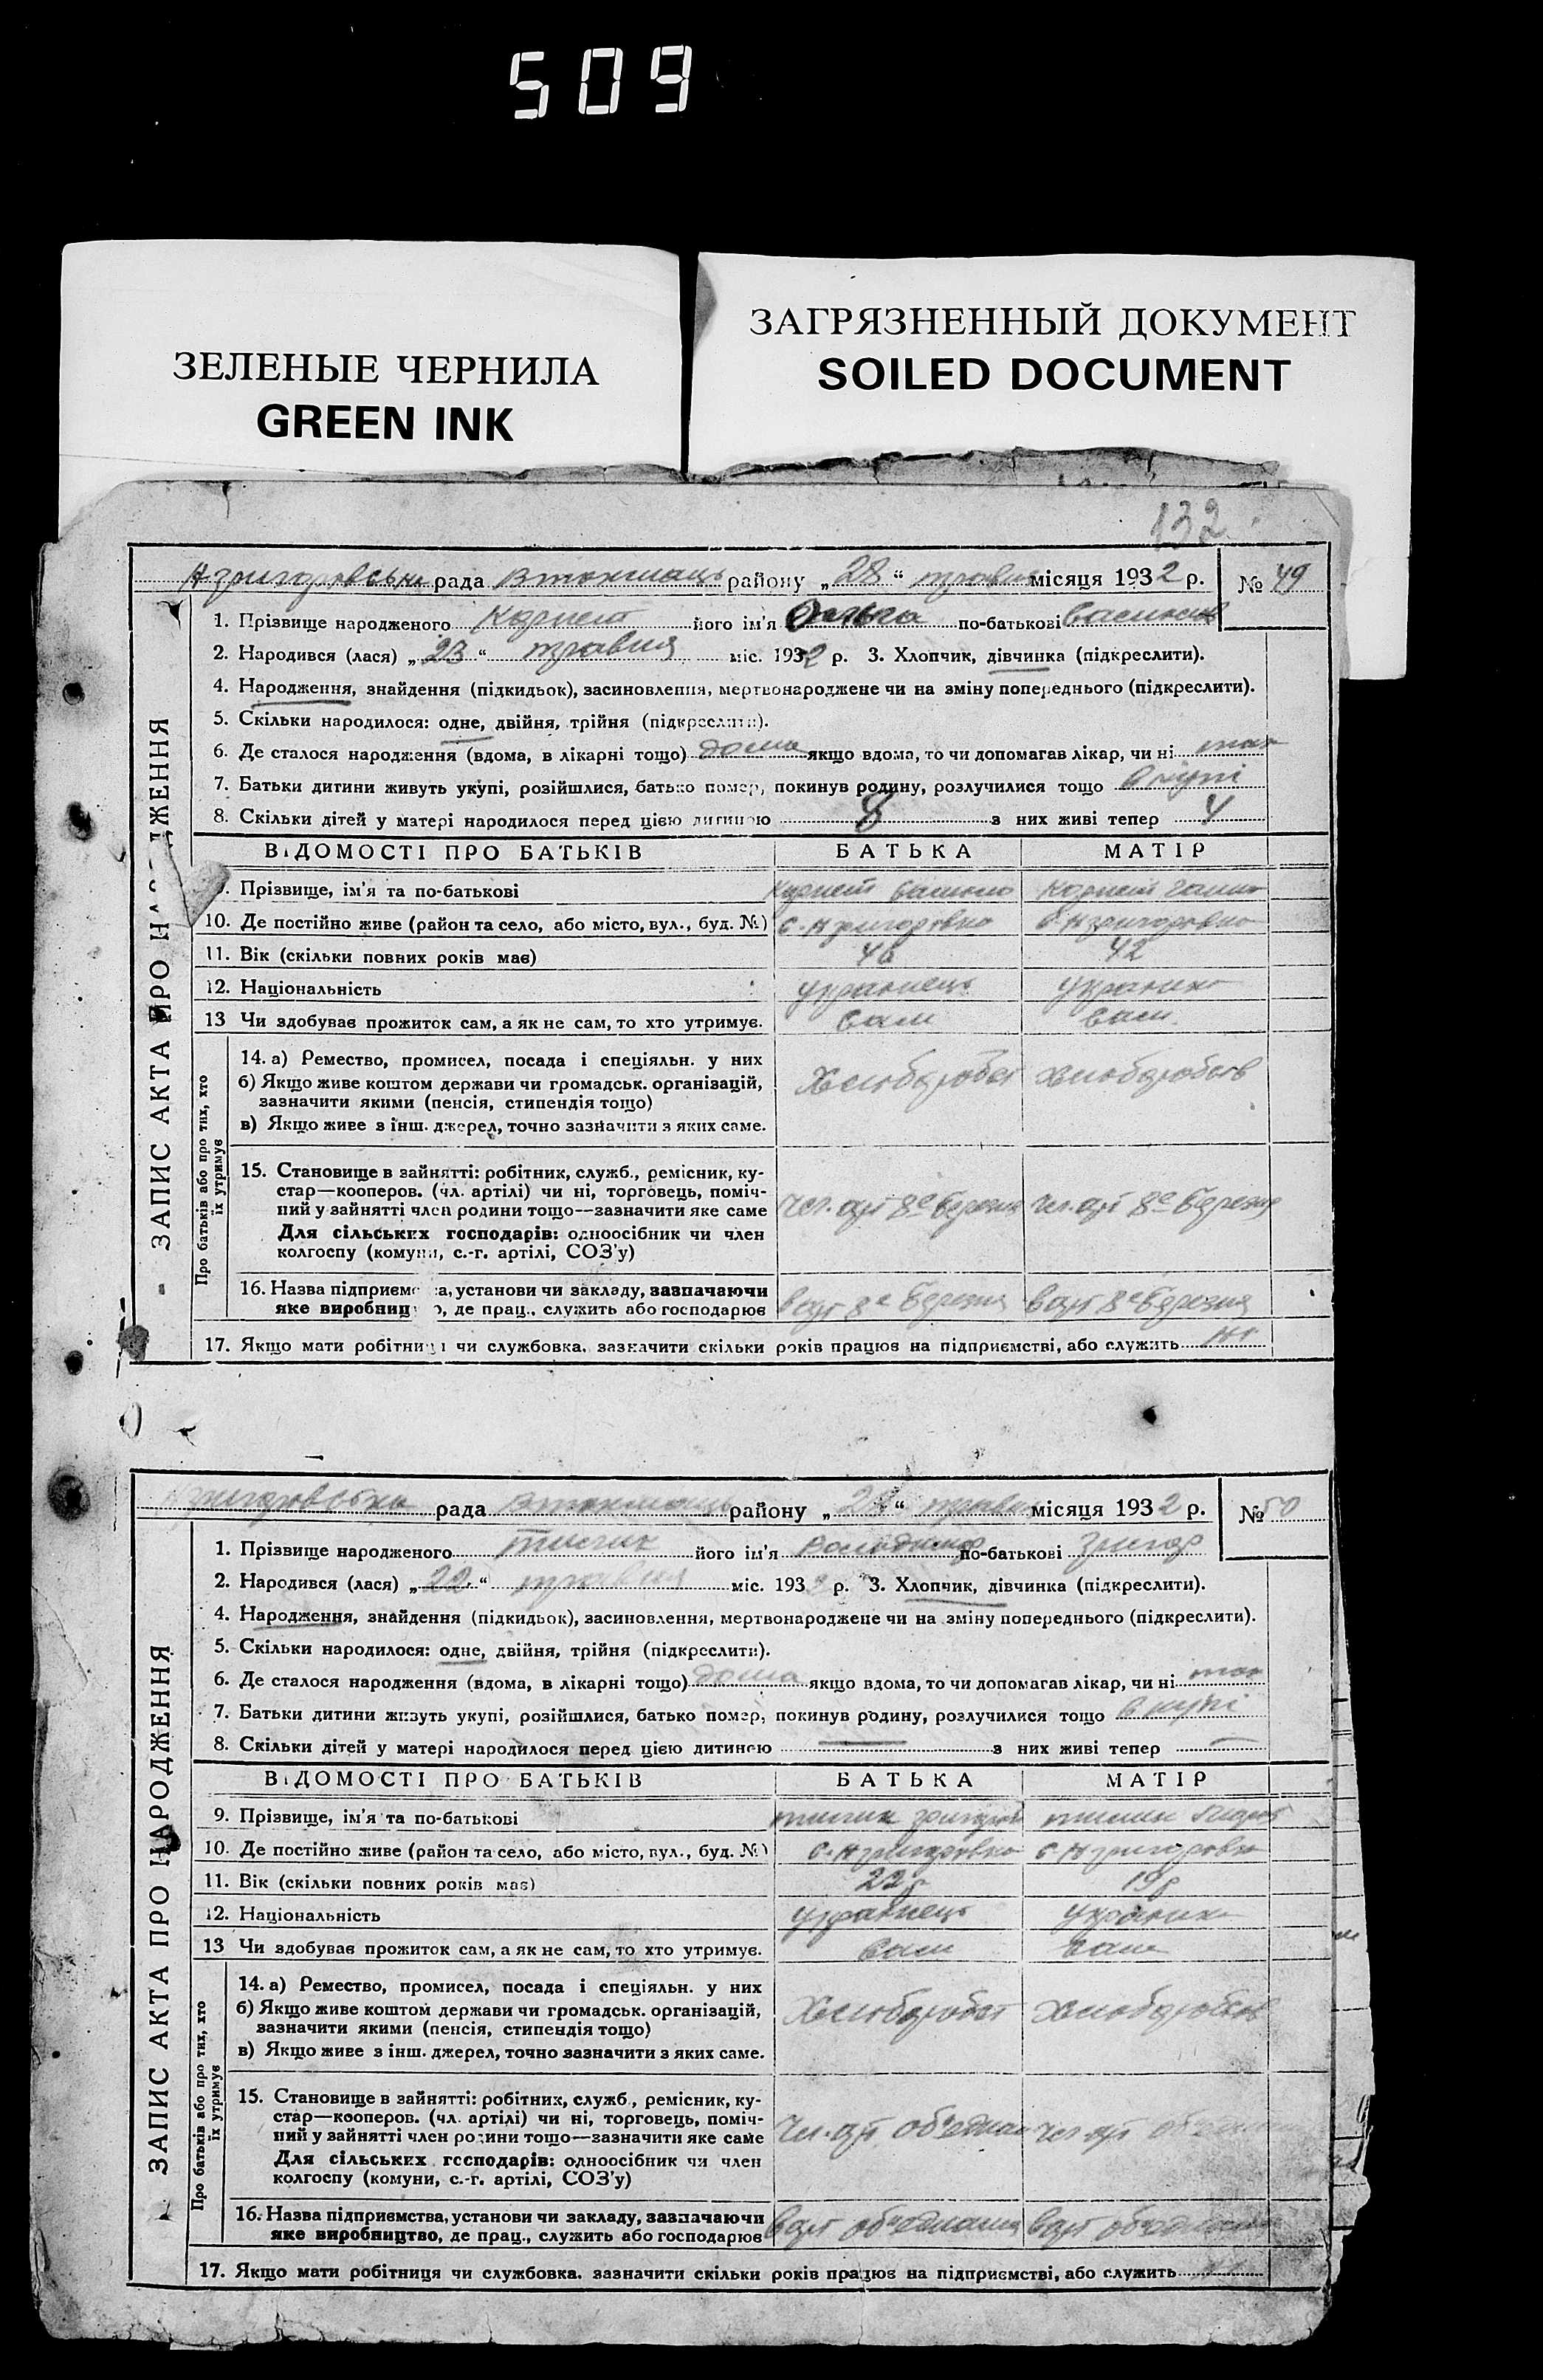 509
ЗЕЛЕНЫЕ ЧЕРНИЛА
GREEN INK
ЗАГРЯЗНЕННЫЙ ДОКУМЕНТ
SOILED DOCUMENT
132
ЗАПИС АКТА ПРО НАРОДЖЕННЯ
рада В токмаць району „28“ травня місяця 1932 р. № 49
1. Прізвище народженого Корнет його ім'я Ольга по-батькові
2. Народився (лася) „23“ травня міс. 1932 р. 3. Хлопчик, дівчинка (підкреслити).
4. Народження, знайдення (підкидьок), засиновлення, мертвонароджене чи на зміну попереднього (підкреслити).
5. Скільки народилося: одне, двійня, трійня (підкреслити).
6. Де сталося народження (вдома, в лікарні тощо) дома якщо вдома, то чи допомагав лікар, чи ні так
7. Батьки дитини живуть укупі, розійшлися, батько помер, покинув родину, розлучилися тощо вкупі
8. Скільки дітей у матері народилося перед цією дитиною 8 з них живі тепер 4
ВІДОМОСТІ ПРО БАТЬКІВ БАТЬКА МАТІР
9. Прізвище, ім'я та по-батькові Корнет Корнет
10. Де постійно живе (район та село, або місто, вул., буд. №) с. Н григоровка с. Н григоровка
11. Вік (скільки повних років має) 46 42
12. Національність Українець Українка
13 Чи здобуває прожиток сам, а як не сам, то хто утримує. сам сам
Про батьків або про тих, хто їх утримує
14. а) Ремество, промисел, посада і спеціяльн. у них
б) Якщо живе коштом держави чи громадськ. організацій,
зазначити якими (пенсія, стипендія тощо) Хлібороб
в) Якщо живе з інш. джерел, точно зазначити з яких саме.
15. Становище в зайнятті: робітник, служб., ремісник, ку-
стар—кооперов. (чл. артілі) чи ні, торговець, поміч-
ний у зайнятті член родини тощо—зазначити яке саме Чл. арт 8е березня Чл. арт 8е березня
Для сільських господарів: одноосібник чи член
колгоспу (комуни, с.-г. артілі, СОЗ'у)
16. Назва підприємства, установи чи закладу, зазначаючи
яке виробництво, де прац., служить або господарює в арт 8е березня в арт 8е березня
17. Якщо мати робітниця чи службовка, зазначити скільки років працює на підприємстві, або служить ні
ЗАПИС АКТА ПРО НАРОДЖЕННЯ
рада В токмаць району „28“ травня місяця 1932 р. № 50
1. Прізвище народженого його ім'я Володимир по-батькові Григор
2. Народився (лася) „22“ травня міс. 1932 р. 3. Хлопчик, дівчинка (підкреслити).
4. Народження, знайдення (підкидьок), засиновлення, мертвонароджене чи на зміну попереднього (підкреслити).
5. Скільки народилося: одне, двійня, трійня (підкреслити).
6. Де сталося народження (вдома, в лікарні тощо) дома якщо вдома, то чи допомагав лікар, чи ні так
7. Батьки дитини живуть укупі, розійшлися, батько помер, покинув родину, розлучилися тощо вкупі
8. Скільки дітей у матері народилося перед цією дитиною — з них живі тепер —
ВІДОМОСТІ ПРО БАТЬКІВ БАТЬКА МАТІР
9. Прізвище, ім'я та по-батькові
10. Де постійно живе (район та село, або місто, вул., буд. №) с. Н григоровка с. Н григоровка
11. Вік (скільки повних років має) 22 р 19 р
12. Національність Українець Українка
13 Чи здобуває прожиток сам, а як не сам, то хто утримує. сам сам
Про батьків або про тих, хто їх утримує
14. а) Ремество, промисел, посада і спеціяльн. у них
б) Якщо живе коштом держави чи громадськ. організацій,
зазначити якими (пенсія, стипендія тощо)
в) Якщо живе з інш. джерел, точно зазначити з яких саме.
15. Становище в зайнятті: робітник, служб., ремісник, ку-
стар—кооперов. (чл. артілі) чи ні, торговець, поміч-
ний у зайнятті член родини тощо—зазначити яке саме Чл. арт Чл. арт
Для сільських господарів: одноосібник чи член
колгоспу (комуни, с.-г. артілі, СОЗ'у)
16. Назва підприємства, установи чи закладу, зазначаючи
яке виробництво, де прац., служить або господарює в арт в арт
17. Якщо мати робітниця чи службовка, зазначити скільки років працює на підприємстві, або служить